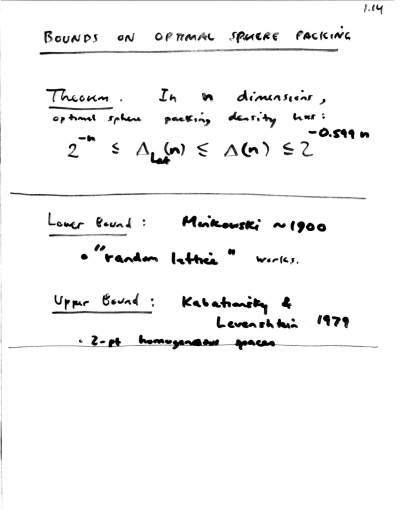 1.14
BOUNDS ON OPTIMAL SPHERE PACKING
Theorem. In n dimensions,
optimal sphere packing density has:
2^{-n} ≤ Δ_{Lat}(n) ≤ Δ(n) ≤ 2^{-0.599n}
Lower Bound: Minkowski ~1900
• "random lattice" works.
Upper Bound: Kabatiansky &
Levenshtein 1979
• 2-pt homogeneous spaces